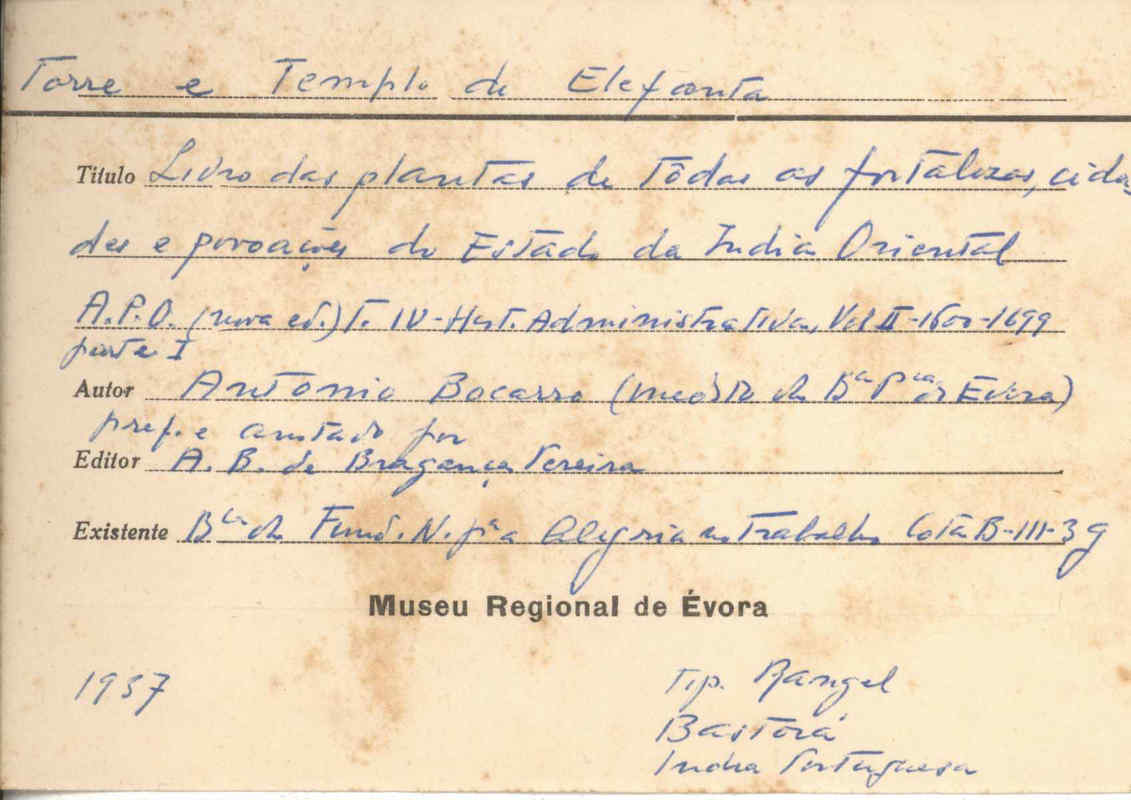 Torre e Templo de Elefanta
Título Livro das plantas de tôdas as fortalezas, cida
des e povoações do Estado da India Oriental
A.P.O. (nova ed.) T. IV - Hist. Administrativa, Vol II - 1600-1699
parte I
Autor António Bocarro (inédito da Bca Pca de Évora)
pref. e anotado por
Editor A. B. de Bragança Pereira
Existente Bca da Fund. N. pª a Alegria no Trabalho Cota B-III-39
Museu Regional de Évora
1937
Tip. Rangel
Bastorá
India Portuguesa